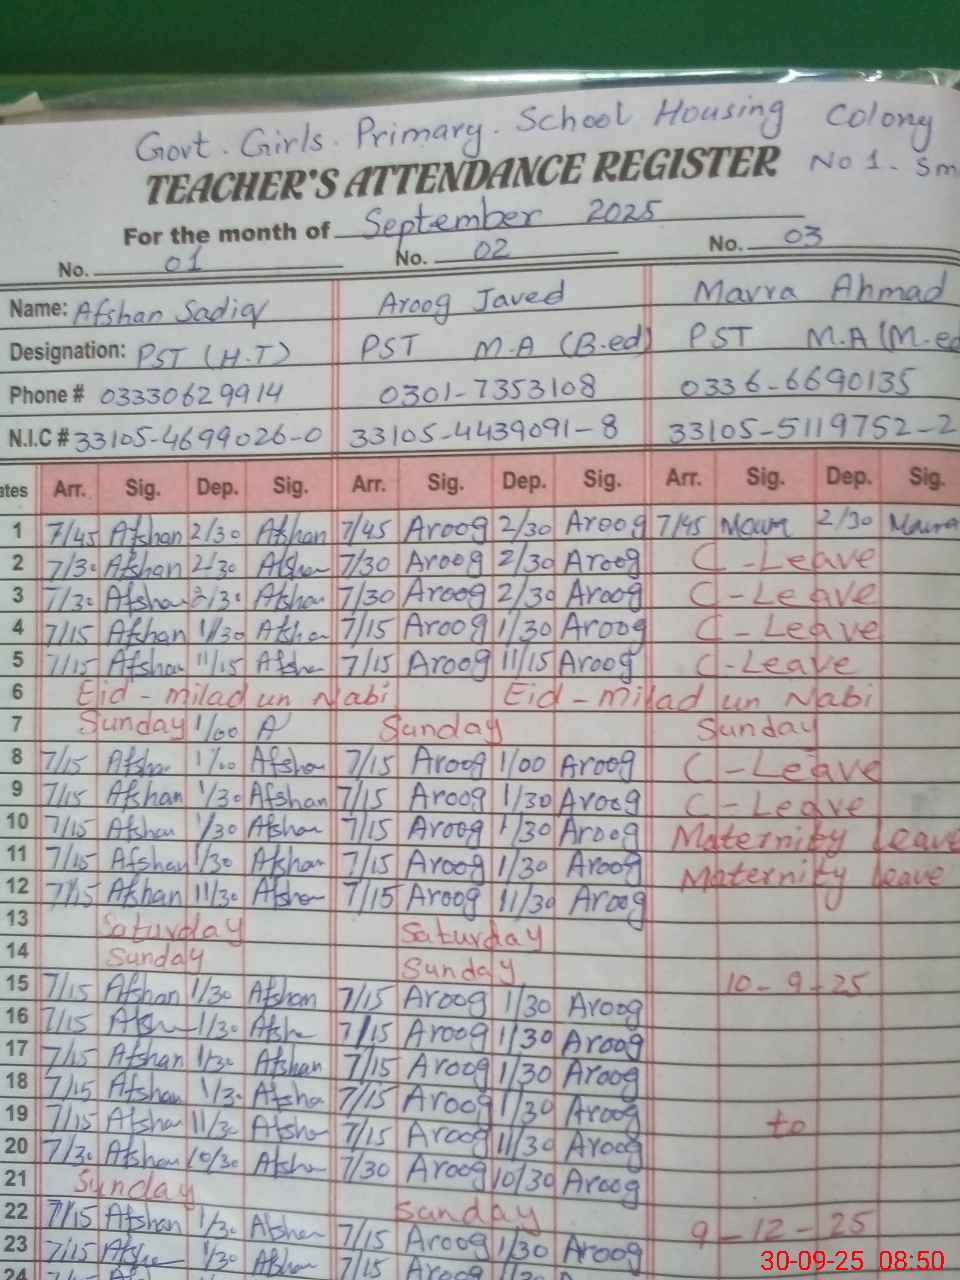 Govt. Girls. Primary. School Housing Colony
TEACHER'S ATTENDANCE REGISTER No 1. Sm
For the month of September 2025
No. 01 No. 02 No. 03
Name: Afshan Sadiq Aroog Javed Mavra Ahmad
Designation: PST (H.T) PST M.A (B.ed) PST M.A (M.ed
Phone # 03330629914 0301-7353108 0336-6690135
N.I.C # 33105-4699026-0 33105-4439091-8 33105-5119752-2
ates Arr. Sig. Dep. Sig. Arr. Sig. Dep. Sig. Arr. Sig. Dep. Sig.
1 7/45 Afshan 2/30 Afshan 7/45 Aroog 2/30 Aroog 7/45 2/30
2 7/30 Afshan 2/30 Afshan 7/30 Aroog 2/30 Aroog C-Leave
3 7/30 Afshan 2/30 Afshan 7/30 Aroog 2/30 Aroog C-Leave
4 7/15 Afshan 1/30 Afshan 7/15 Aroog 1/30 Aroog C-Leave
5 7/15 Afshan 11/15 Afshan 7/15 Aroog 11/15 Aroog C-Leave
6 Eid-milad un Nabi Eid-milad un Nabi
7 Sunday 1/00 A Sunday Sunday
8 7/15 Afshan 1/00 Afshan 7/15 Aroog 1/00 Aroog C-Leave
9 7/15 Afshan 1/30 Afshan 7/15 Aroog 1/30 Aroog C-Leave
10 7/15 Afshan 1/30 Afshan 7/15 Aroog 1/30 Aroog Maternity leave
11 7/15 Afshan 1/30 Afshan 7/15 Aroog 1/30 Aroog Maternity leave
12 7/15 Afshan 11/30 Afshan 7/15 Aroog 11/30 Aroog
13 Saturday Saturday
14 Sunday Sunday
15 7/15 Afshan 1/30 Afshan 7/15 Aroog 1/30 Aroog 10-9-25
16 7/15 Afshan 1/30 Afshan 7/15 Aroog 1/30 Aroog
17 7/15 Afshan 1/30 Afshan 7/15 Aroog 1/30 Aroog
18 7/15 Afshan 1/30 Afshan 7/15 Aroog 1/30 Aroog
19 7/15 Afshan 11/30 Afshan 7/15 Aroog 11/30 Aroog to
20 7/30 Afshan 10/30 Afshan 7/30 Aroog 10/30 Aroog
21 Sunday Sunday
22 7/15 Afshan 1/30 Afshan 7/15 Aroog 1/30 Aroog 9-12-25
23 7/15 Afshan 1/30 Afshan 7/15 Aroog
24
30-09-25 08:50